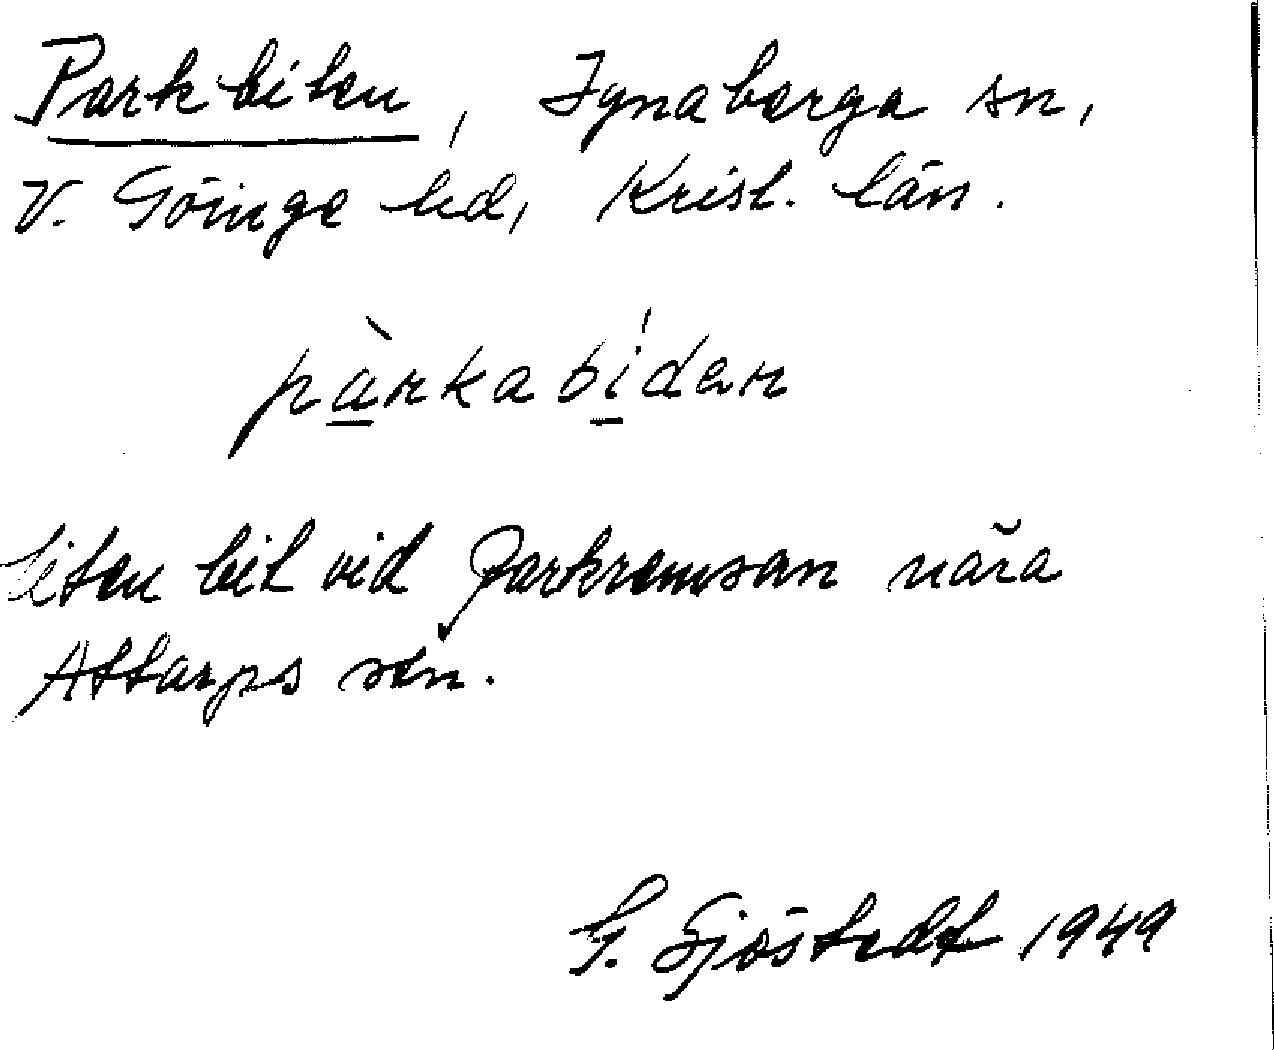 Parkbiten, Ignaberga sn,
V. Göinge hd, Krist. län.
pàrkabíden
liten bit vid Parkremsan nära
Attarps stn.
G. Sjöstedt 1949